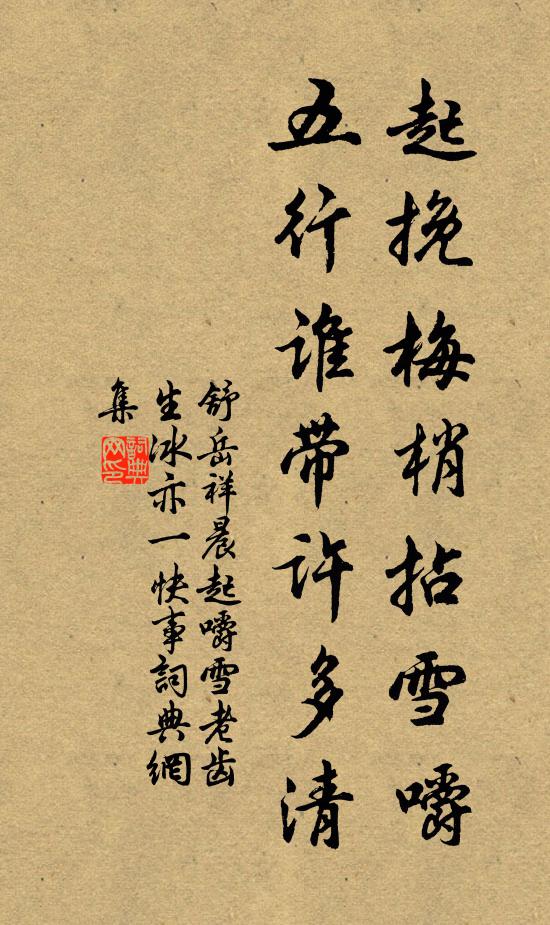 起挽梅梢拈雪嚼
五行谁带许多清
舒岳祥晨起嚼雪老齿
生冰亦一快事詞典網
集
詞典網印